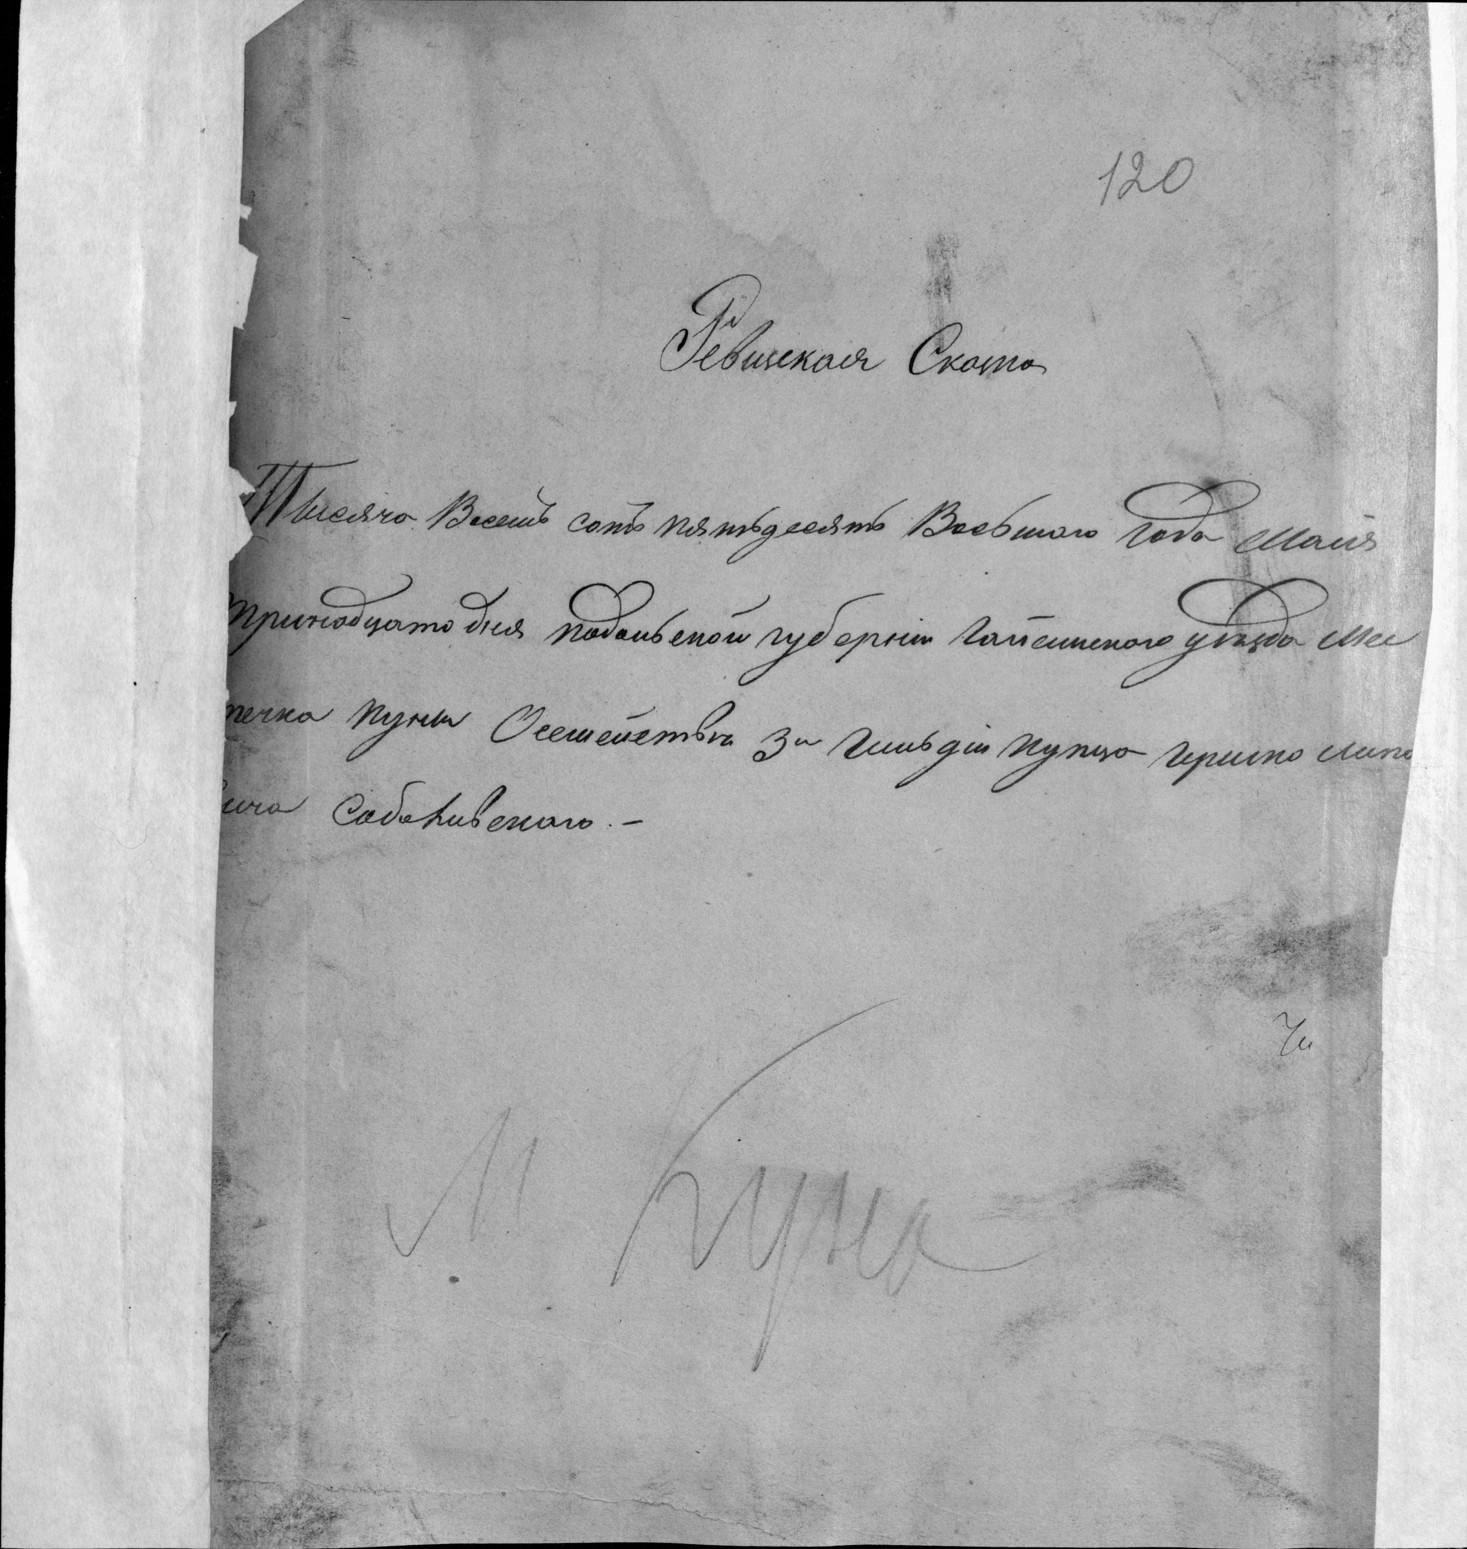 120
Ревизская Сказка
Тысяча Восемь сотъ пятьдесятъ Восьмого года Маия
тринадцато дня подольской губернии гайсинского уѣзда Мес
течка куны Осемействѣ 3й гильдіи купца Гершко
вича Собокивского. –
М Куна